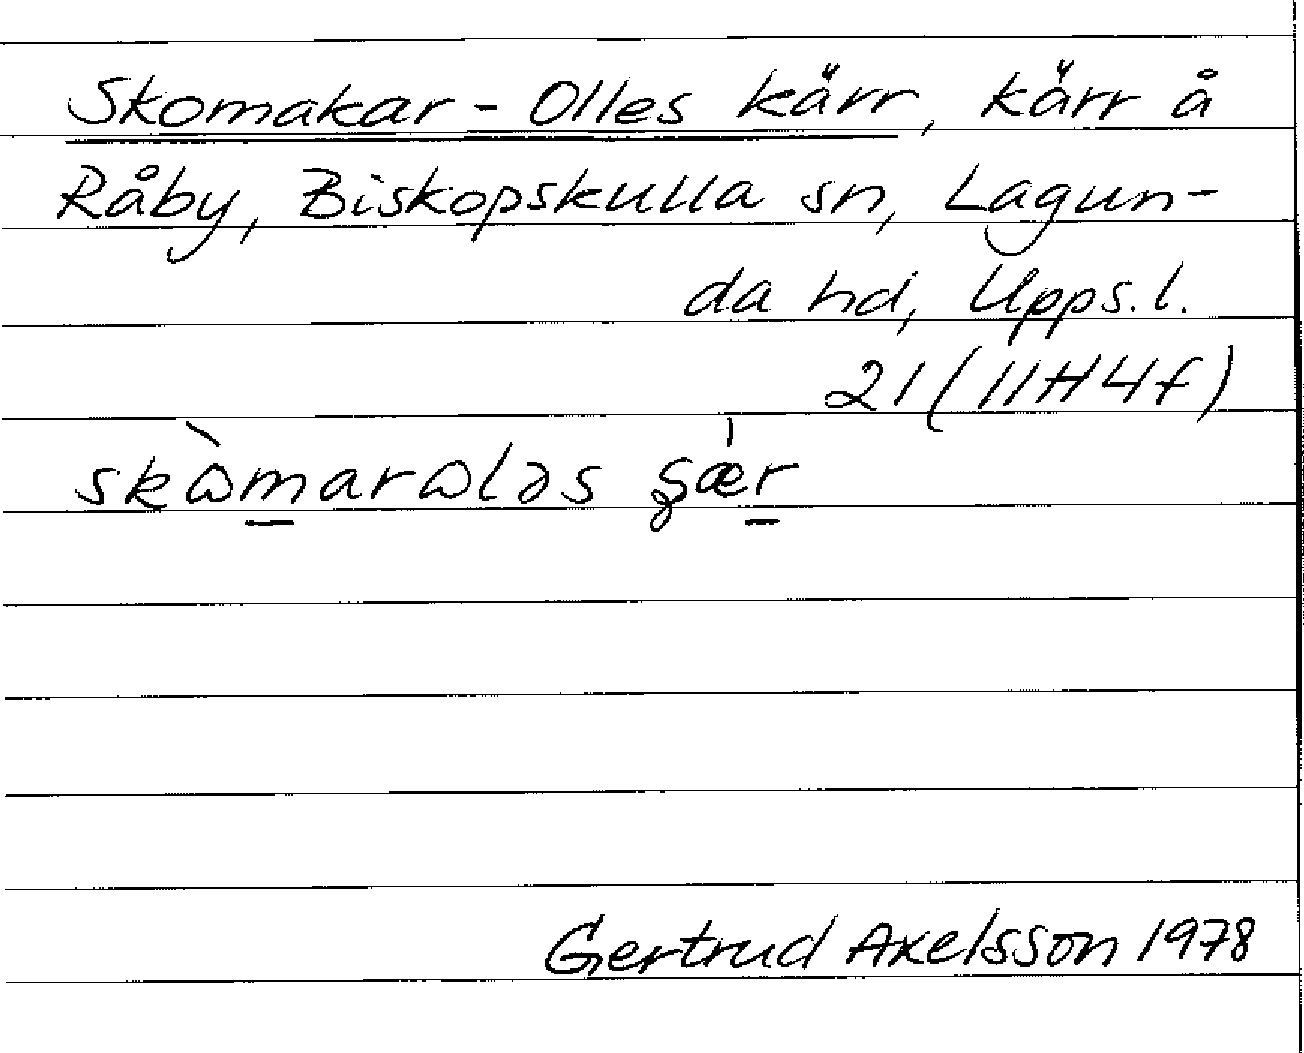 Skomakar-Olles kärr, kärr å
Råby, Biskopskulla sn, Lagun-
da hd, Upps.l.
21 (11H4f)
skὼmarɷləs ʂǽr
Gertrud Axelsson 1978